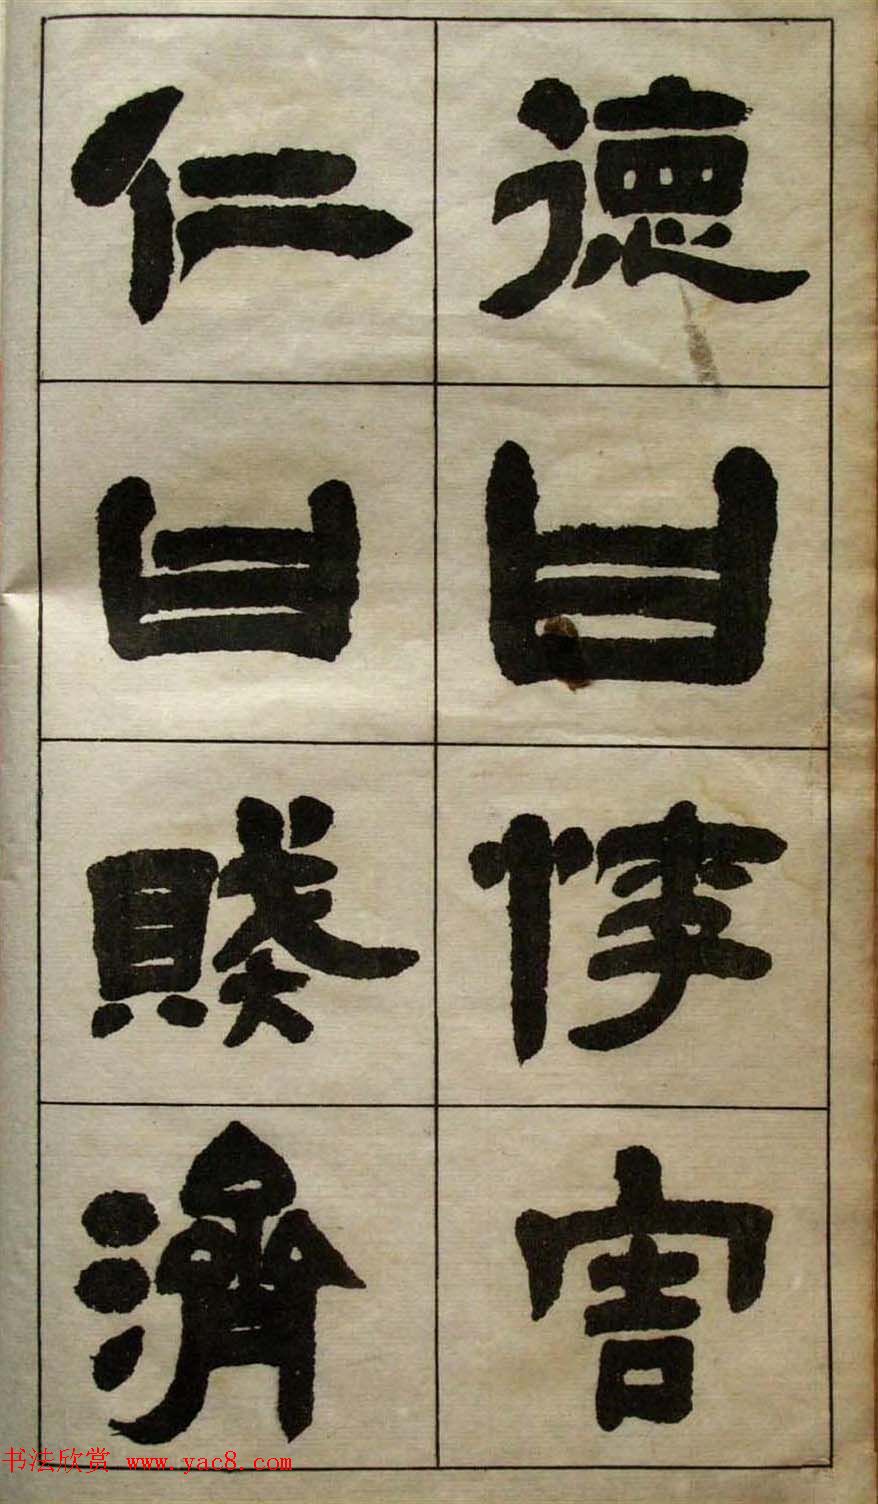 德曰害
仁曰賤濟
书法欣赏 www.yac8.com